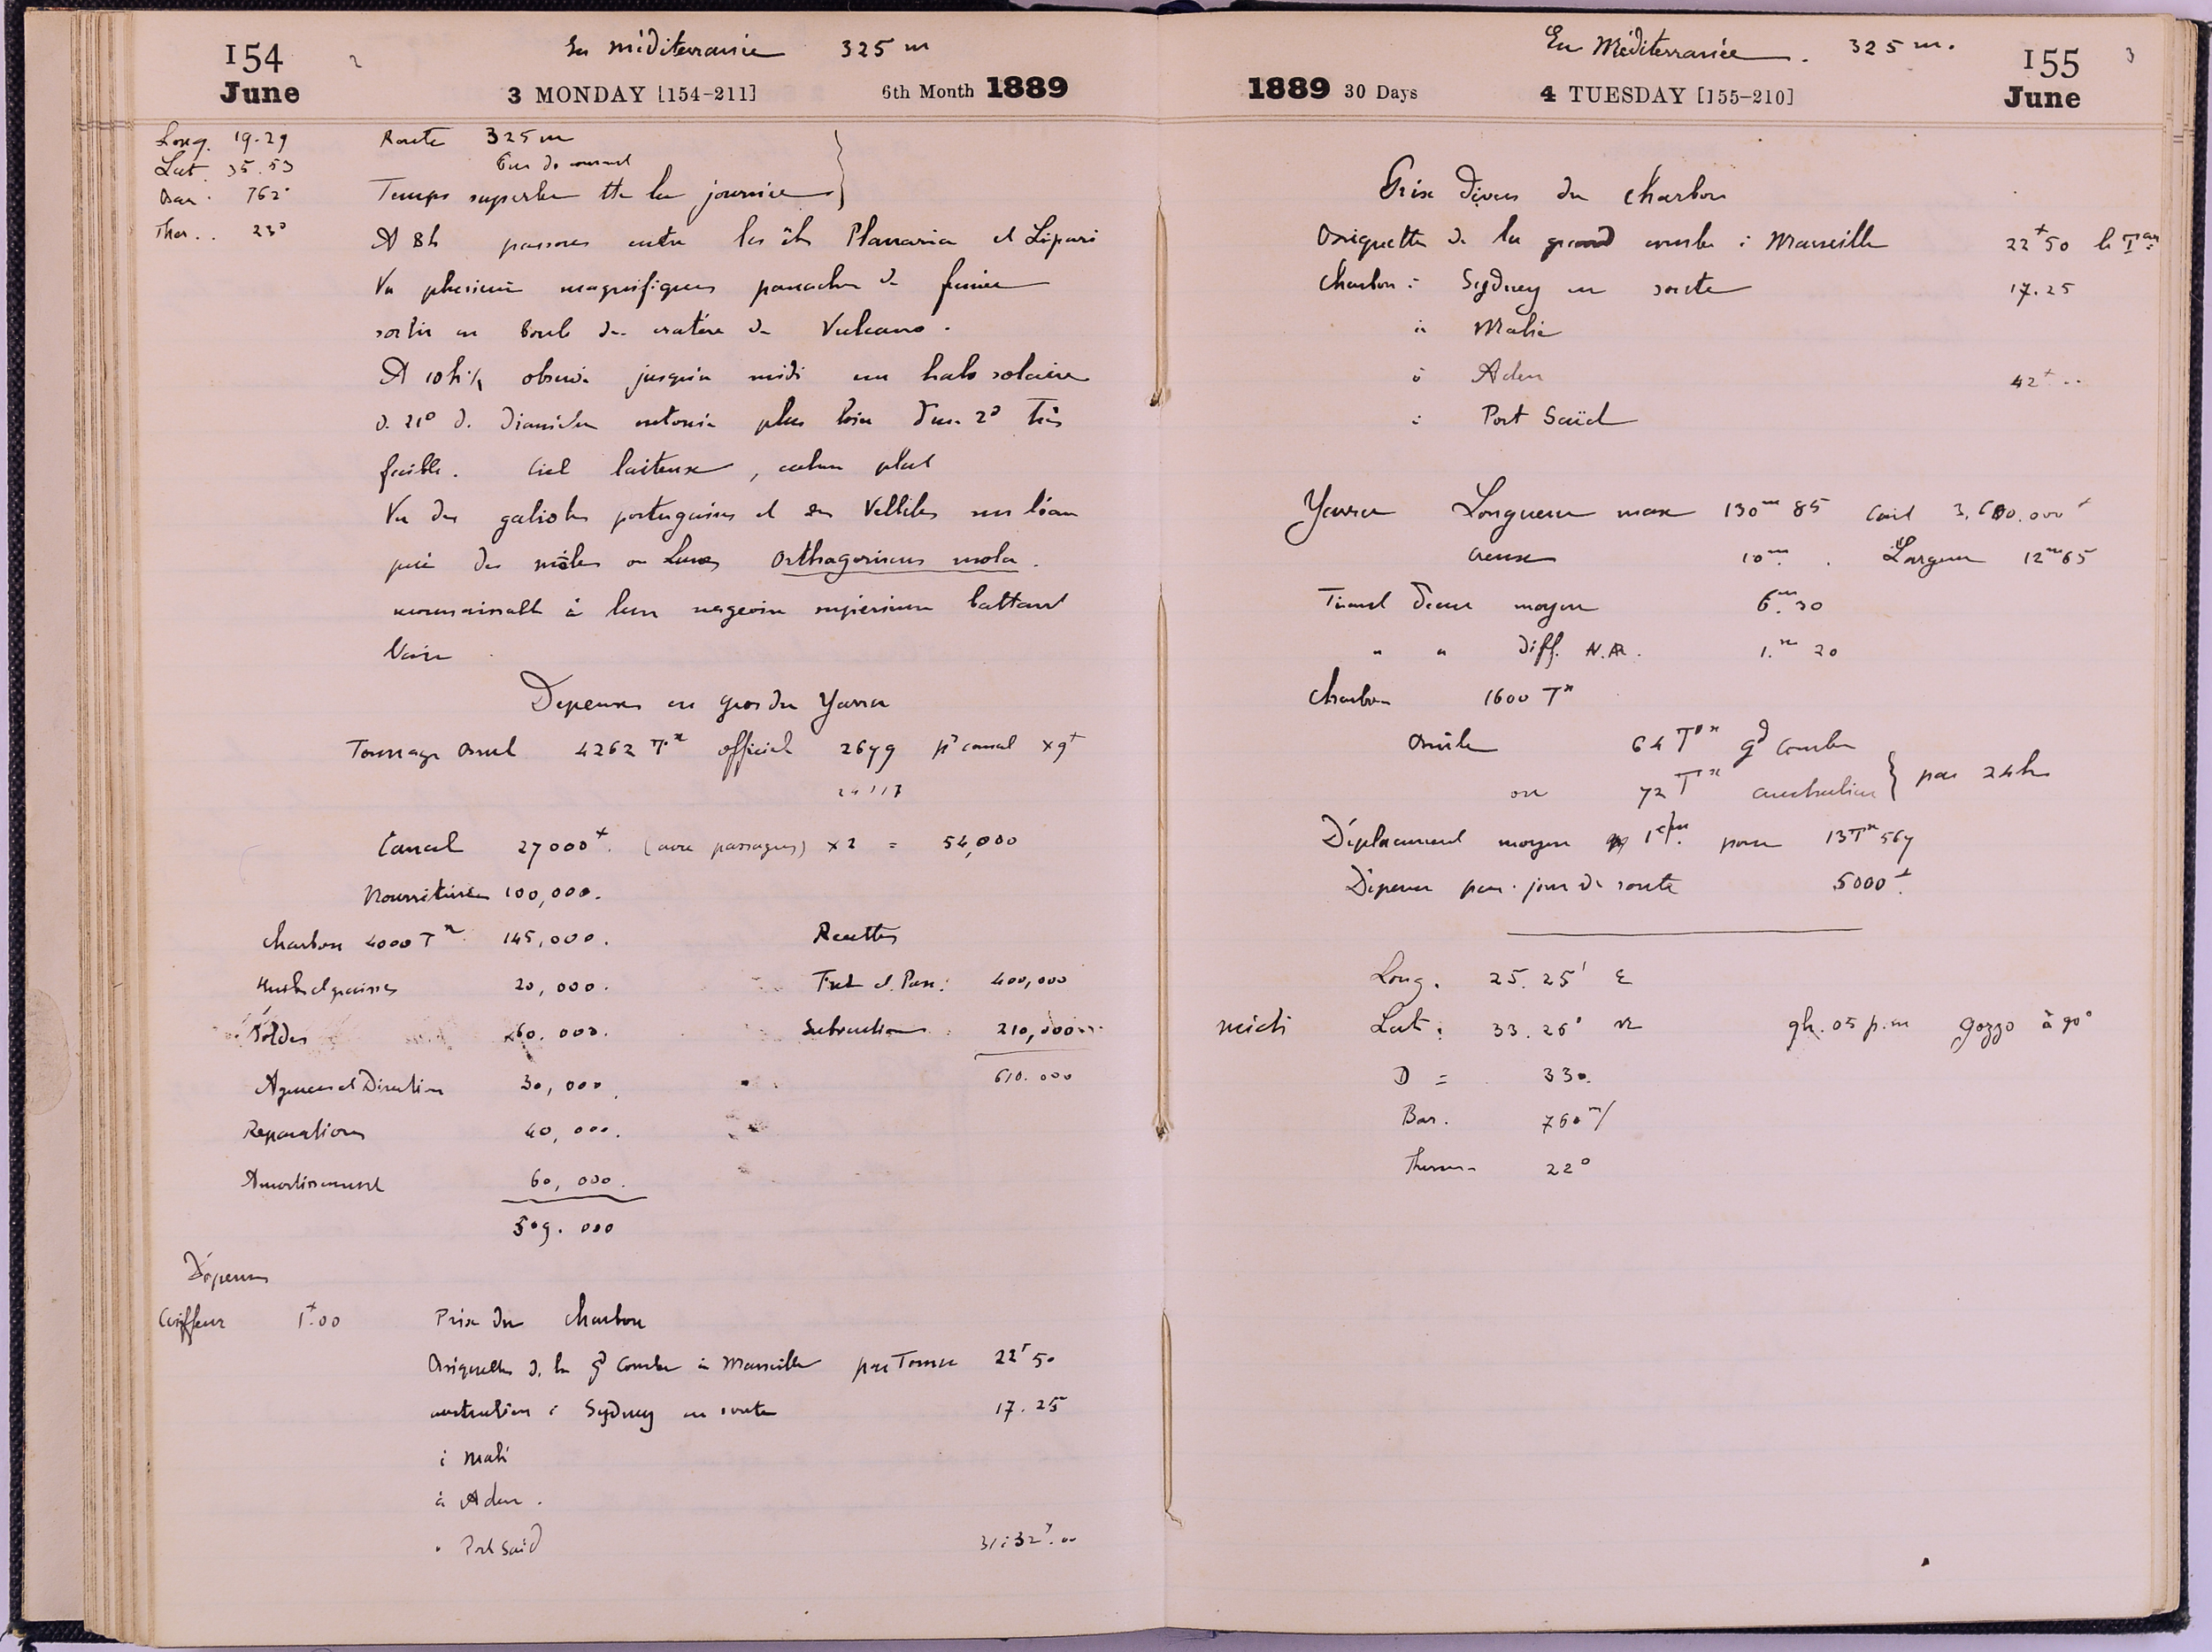 154
June
2
En Méditerranée 325 m
3 MONDAY [154-211]
6th Month 1889
Long. 19.29
Lat. 35.53
Bar. 762
Ther.. 23°
Route 325 m
Temps superbe tte la journée
A 8h passons entre les îles Planaria et Lipari
Vu plusieurs magnifiques panaches de fumée
sortir en boule du cratère de Vulcano.
A 10h½ observé jusqu'à midi un halo solaire
d. 21° d. diamètre entouré plus loin d'un 2d très
faible. Ciel laiteux, calme plat
Vu des galiotes portugaises et des Vellèles sur l'eau
puis des môles ou Lunes Orthagoriscus mola.
reconnaissable à leur nageoire supérieure battant
l'air
Dépenses en gros du Yarra
Tonnage Brut 4262 Tx officiel 2679 pr canal x 9f
24113
Canal 27000f. (avec passagers) x 2 = 54,000
Nourriture 100,000.
Charbon 4000 Tx 145,000.
Huile et graisses 20,000.
Soldes 60.000.
Agences et Direction 30,000.
Réparations 40,000.
Amortissement 60,000.
509.000
Recettes
Fret et Pass. 400,000
Subvention 210,000
610.000
Dépenses
Coiffeur 1f.00
Prix du Charbon
Briquettes d. la gd Combe à Marseille par Tonne 22f50
australien à Sydney en soute 17.25
à Mahé
à Aden.
" Port Saïd 31 à 32f.00
En Méditerranée. 325 m.
155
June
3
1889 30 Days
4 TUESDAY [155-210]
Prix divers du Charbon
Briquettes de la grand combe à Marseille 22f50 la Tne
Charbon à Sydney en soute 17.25
à Mahé
à Aden 42f..
à Port Saïd
Yarra Longueur max 130m85 Coût 3.600.000f
Creux 10m. Largeur 12m65
Tirant d'eau moyen 6m.30
" " diff. N.AR. 1.m20
Charbon 1600 Tx
Brûle 64 Tx gd Combe
ou 72 Tx australien } par 24h
Déplacement moyen pour 13Tx567
Dépense par jour de route 5000f.
Long. 25.25' E
midi Lat. 33.26' N 9h.05 p.m Gozzo à 90°
D = 330.
Bar. 760m/
Therm. 22°